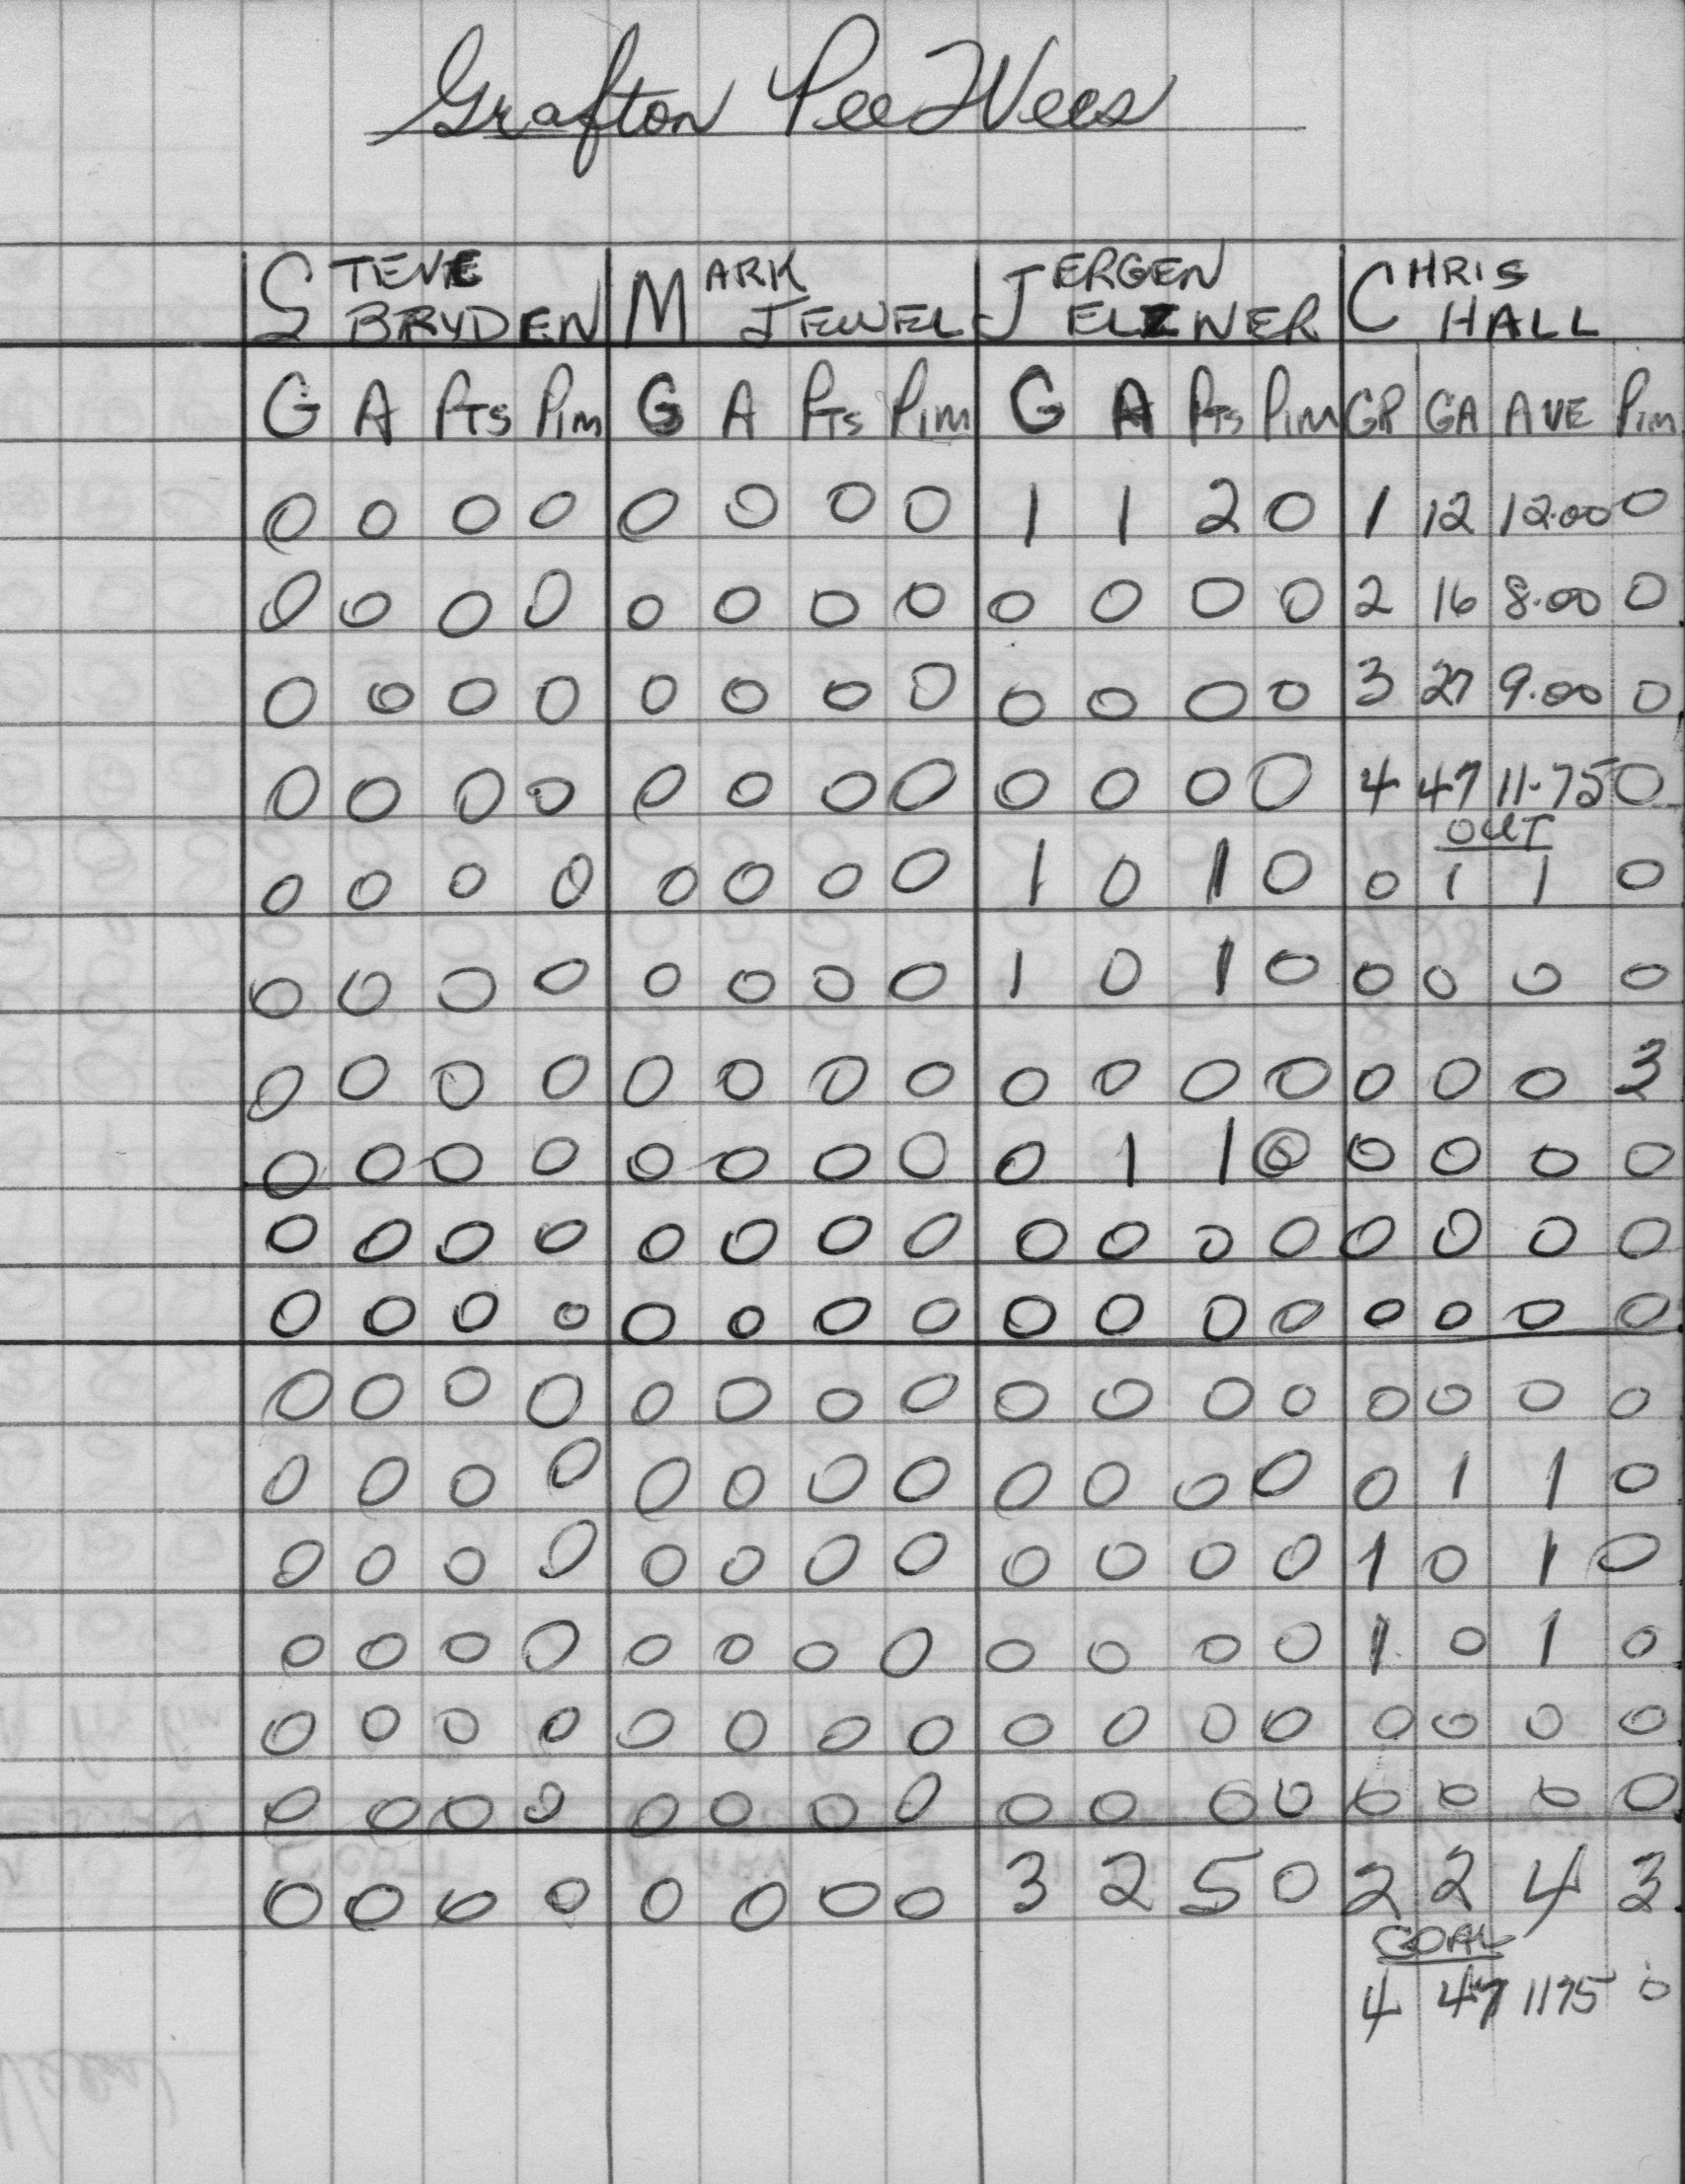 Grafton PeeWees
STEVE BRYDEN MARK JEWEL JERGEN ELZNER CHRIS HALL
G A PTS PIM G A PTS PIM G A PTS PIM GP GA AVE PIM
0 0 0 0 0 0 0 0 1 1 2 0 1 12 12.00 0
0 0 0 0 0 0 0 0 0 0 0 0 2 16 8.00 0
0 0 0 0 0 0 0 0 0 0 0 0 3 27 9.00 0
0 0 0 0 0 0 0 0 0 0 0 0 4 47 11.75 0
OUT
0 0 0 0 0 0 0 0 1 0 1 0 0 1 1 0
0 0 0 0 0 0 0 0 1 0 1 0 0 0 0 0
0 0 0 0 0 0 0 0 0 0 0 0 0 0 0 3
0 0 0 0 0 0 0 0 0 1 1 0 0 0 0 0
0 0 0 0 0 0 0 0 0 0 0 0 0 0 0 0
0 0 0 0 0 0 0 0 0 0 0 0 0 0 0 0
0 0 0 0 0 0 0 0 0 0 0 0 0 0 0 0
0 0 0 0 0 0 0 0 0 0 0 0 0 1 1 0
0 0 0 0 0 0 0 0 0 0 0 0 1 0 1 0
0 0 0 0 0 0 0 0 0 0 0 0 1 0 1 0
0 0 0 0 0 0 0 0 0 0 0 0 0 0 0 0
0 0 0 0 0 0 0 0 0 0 0 0 0 0 0 0
0 0 0 0 0 0 0 0 3 2 5 0 2 2 4 3
GOAL
4 47 1175 0